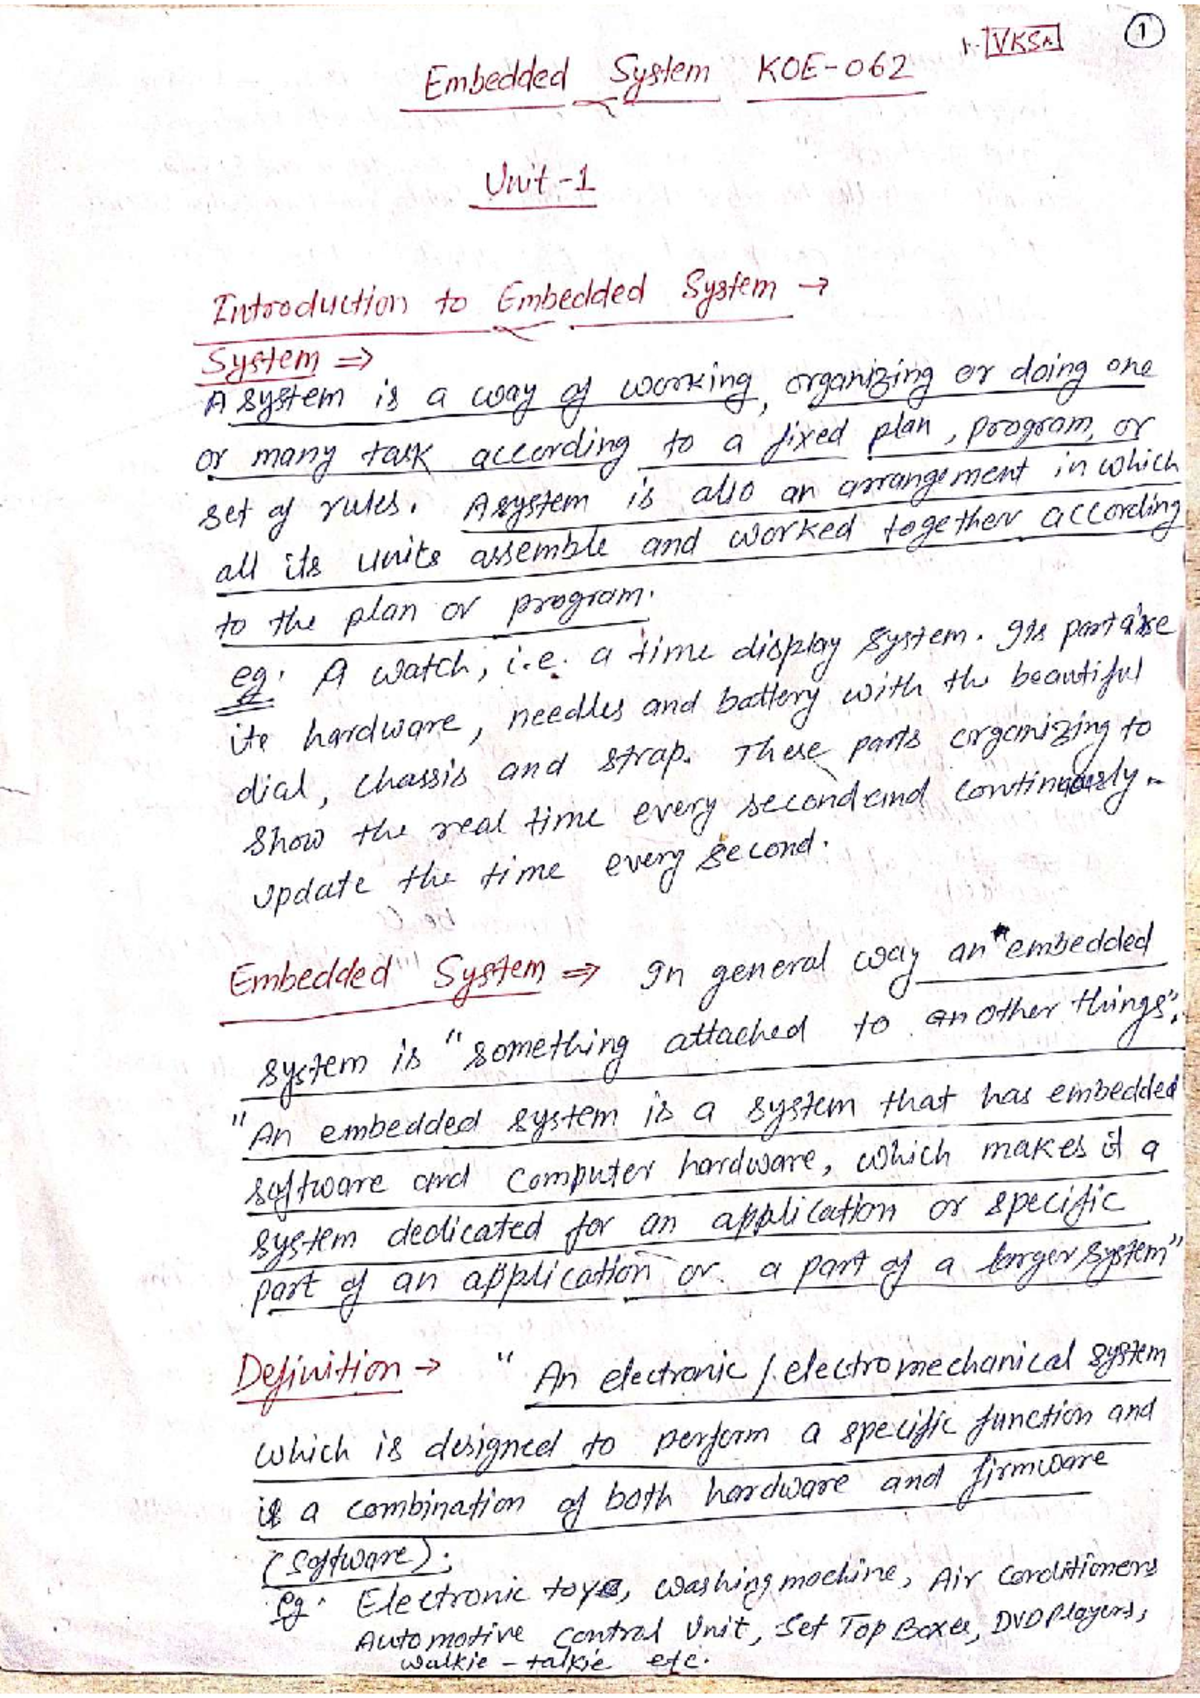 1
VKSA
Embedded System KOE-062
Unit-1
Introduction to Embedded System →
System ⇒
A system is a way of working, organizing or doing one
or many task according to a fixed plan, program, or
set of rules. A system is also an arrangement in which
all its units assemble and worked together according
to the plan or program.
eg: A watch, i.e. a time display system. Its part are
its hardware, needles and battery with the beautiful
dial, chassis and strap. These parts organizing to
show the real time every second and continuously
update the time every second.
Embedded System ⇒ In general way an "embedded
system is "something attached to another things".
"An embedded system is a system that has embedded
software and computer hardware, which makes it a
system dedicated for an application or specific
part of an application or a part of a larger system"
Definition → "An electronic / electromechanical system
which is designed to perform a specific function and
is a combination of both hardware and firmware
(Software).
eg. Electronic toys, washing machine, Air Conditioners
Automotive Control Unit, Set Top Boxes, DVD Players,
walkie-talkie etc.